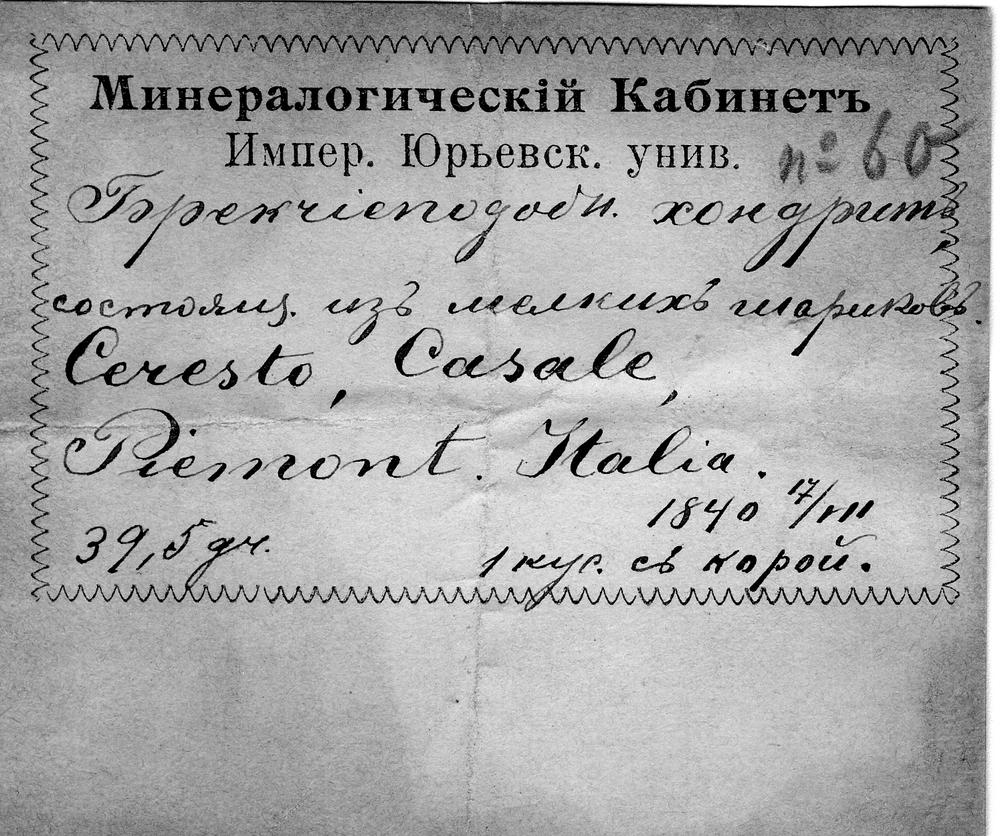 Минералогическій Кабинетъ
Импер. Юрьевск. унив.
nº 60
Брекчіеподобн. хондритъ,
состоящ. изъ мелкихъ шариковъ.
Ceresto, Casale,
Piemont. Italia.
1840 17/VII
39,5 гр.
1 кус. съ корой.